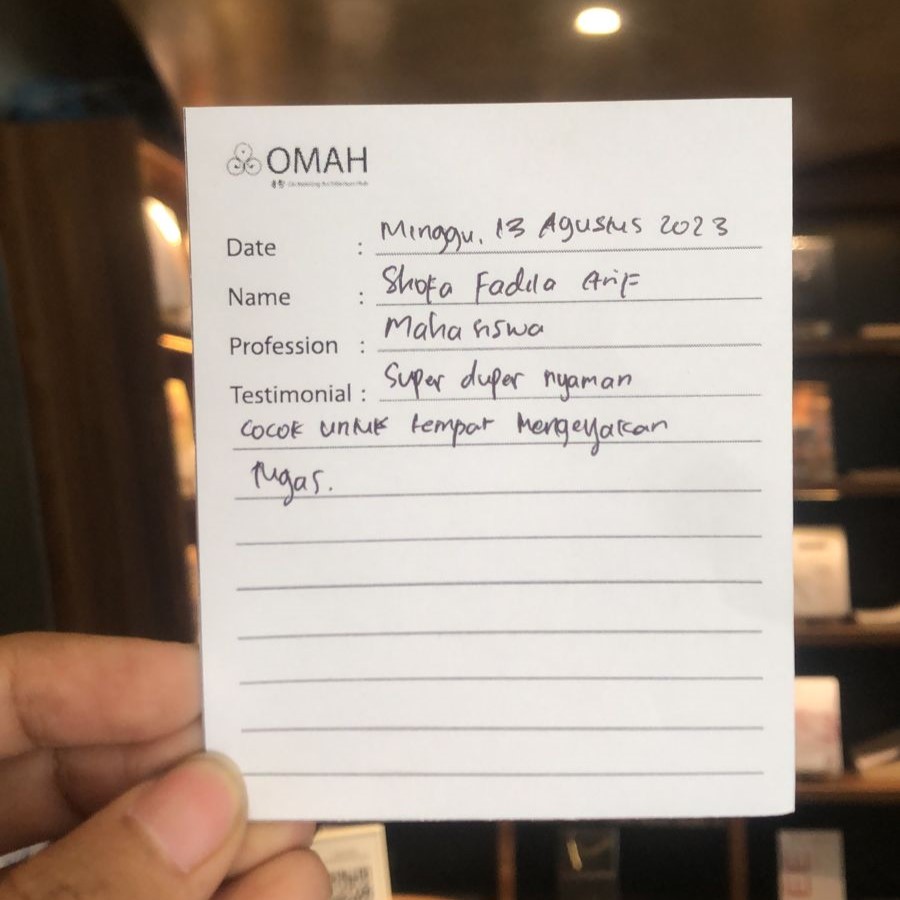 OMAH
Date : Minggu, 13 Agustus 2023
Name : Shofa Fadila Arif
Profession : Mahasiswa
Testimonial : Super duper nyaman
cocok untuk tempat mengerjakan
Tugas.